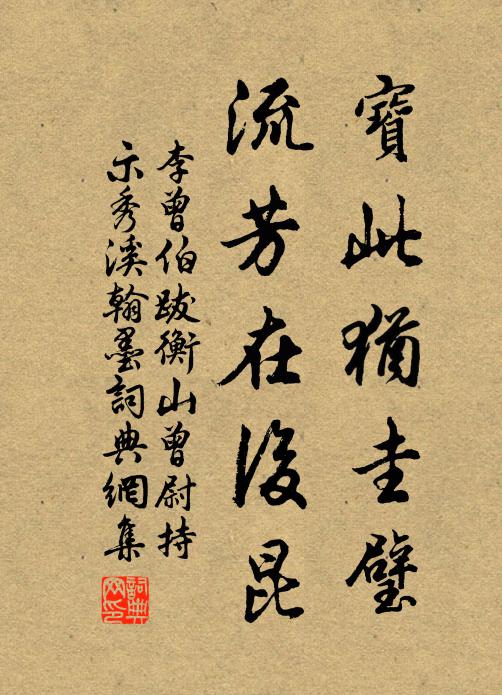 寶此猶圭璧
流芳在後昆
李曾伯跋衡山曾尉持
示秀溪翰墨詞典網集
詞典网印